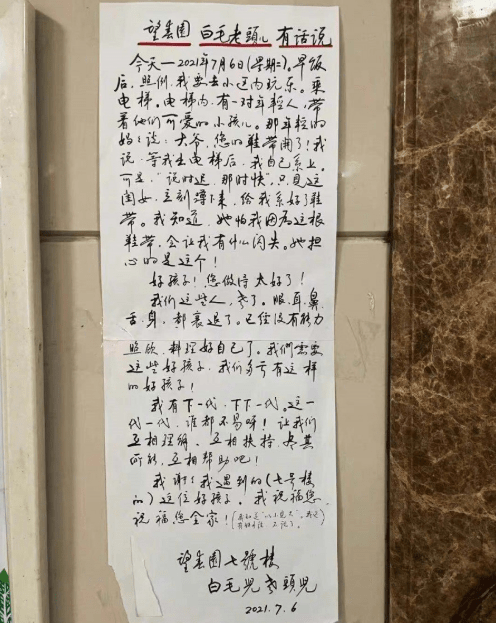 望春園 白毛老頭儿 有话说
今天—2021年7月6日(星期二)。早饭
后，照例，我要去小区内玩乐。乘
电梯。电梯内，有一对年轻人，带
着他们可爱的小孩儿。那年轻的
妈妈说：大爷，您的鞋带開了！我
说：等我出电梯后，我自己系上。
可是，"说时迟，那时快"，只見这
闺女，立刻蹲下来，给我系好了鞋
带。我知道，她怕我因为这根
鞋带，会让我有什么闪失。她担
心的是这个！
好孩子！您做得太好了！
我们这些人，老了。眼、耳、鼻、
舌、身，都衰退了。已经没有能力
照欣、料理好自己了。我們需要
这些好孩子，我们多亏有这样
的好孩子！
我有下一代，下下一代。这一
代一代，谁都不易呀！让我们
互相理解，互相扶持，尽其
所能，互相帮助吧！
我谢谢我遇到的(七号楼
的)这位好孩子。我祝福您，
祝福您全家！
望春園七號楼
白毛兒老頭兒
2021.7.6